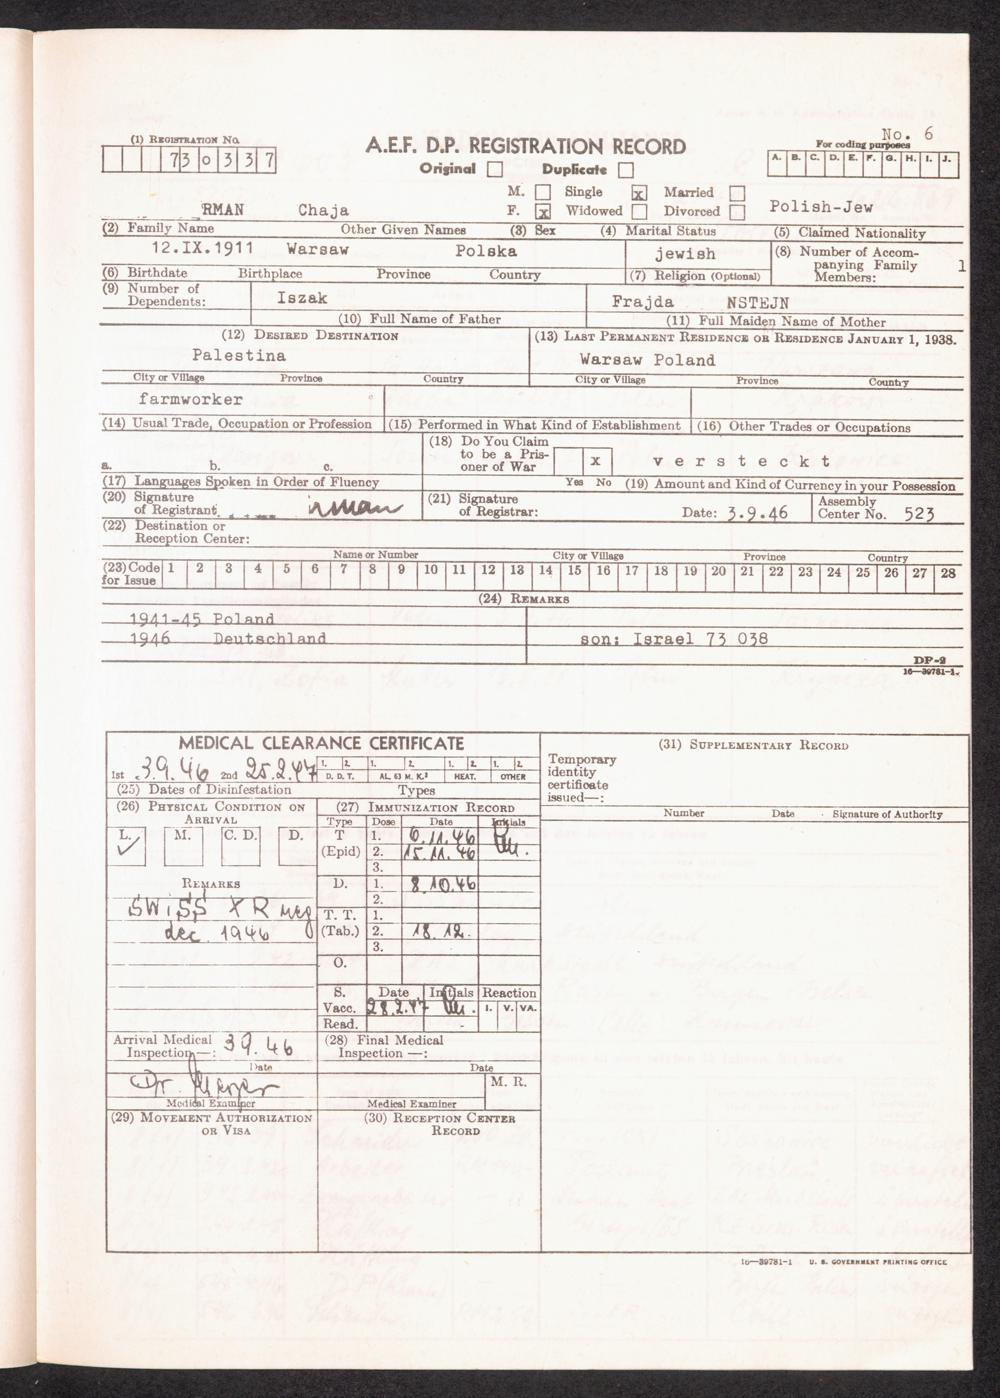 No. 6
(1) REGISTRATION NO.
730337
A.E.F. D.P. REGISTRATION RECORD
For coding purposes
A. B. C. D. E. F. G. H. I. J.
Original Duplicate
M. Single x Married
F. x Widowed Divorced
RMAN Chaja Polish-Jew
(2) Family Name Other Given Names (3) Sex (4) Marital Status (5) Claimed Nationality
12.IX.1911 Warsaw Polska jewish
(8) Number of Accompanying Family Members: 1
(6) Birthdate Birthplace Province Country (7) Religion (Optional)
(9) Number of Dependents:
Iszak Frajda NSTEJN
(10) Full Name of Father (11) Full Maiden Name of Mother
(12) DESIRED DESTINATION (13) LAST PERMANENT RESIDENCE OR RESIDENCE JANUARY 1, 1938.
Palestina Warsaw Poland
City or Village Province Country City or Village Province Country
farmworker
(14) Usual Trade, Occupation or Profession (15) Performed in What Kind of Establishment (16) Other Trades or Occupations
(18) Do You Claim
to be a Pris-
oner of War x versteckt
a. b. c.
Yes No
(17) Languages Spoken in Order of Fluency (19) Amount and Kind of Currency in your Possession
(20) Signature
of Registrant: rman
(21) Signature
of Registrar: Date: 3.9.46
Assembly
Center No. 523
(22) Destination or
Reception Center:
Name or Number City or Village Province Country
(23) Code
for Issue
1 2 3 4 5 6 7 8 9 10 11 12 13 14 15 16 17 18 19 20 21 22 23 24 25 26 27 28
(24) REMARKS
1941-45 Poland
1946 Deutschland son: Israel 73 038
DP-2
16—39781-1
MEDICAL CLEARANCE CERTIFICATE
1st 3.9.46 2nd 25.2.47
1. 2. 1. 2. 1. 2. 1. 2.
D. D. T. AL. 63 M. K.³ HEAT. OTHER
(25) Dates of Disinfestation Types
(26) PHYSICAL CONDITION ON
ARRIVAL
L. M. C. D. D.
REMARKS
SWISS XR neg
dec 1946
(27) IMMUNIZATION RECORD
Type Dose Date Initials
T 1. 6.11.46
(Epid) 2. 15.11.46
3.
D. 1. 8.10.46
2.
T. T. 1.
(Tab.) 2. 18.12.
3.
O.
S. Date Initials Reaction
Vacc. 28.2.47 I. V. VA.
Read.
Arrival Medical
Inspection—: 3 9. 46
Date
Dr.
Medical Examiner
(28) Final Medical
Inspection —:
Date
M. R.
Medical Examiner
(29) MOVEMENT AUTHORIZATION
OR VISA
(30) RECEPTION CENTER
RECORD
(31) SUPPLEMENTARY RECORD
Temporary
identity
certificate
issued—:
Number Date Signature of Authority
16—39781-1 U. S. GOVERNMENT PRINTING OFFICE